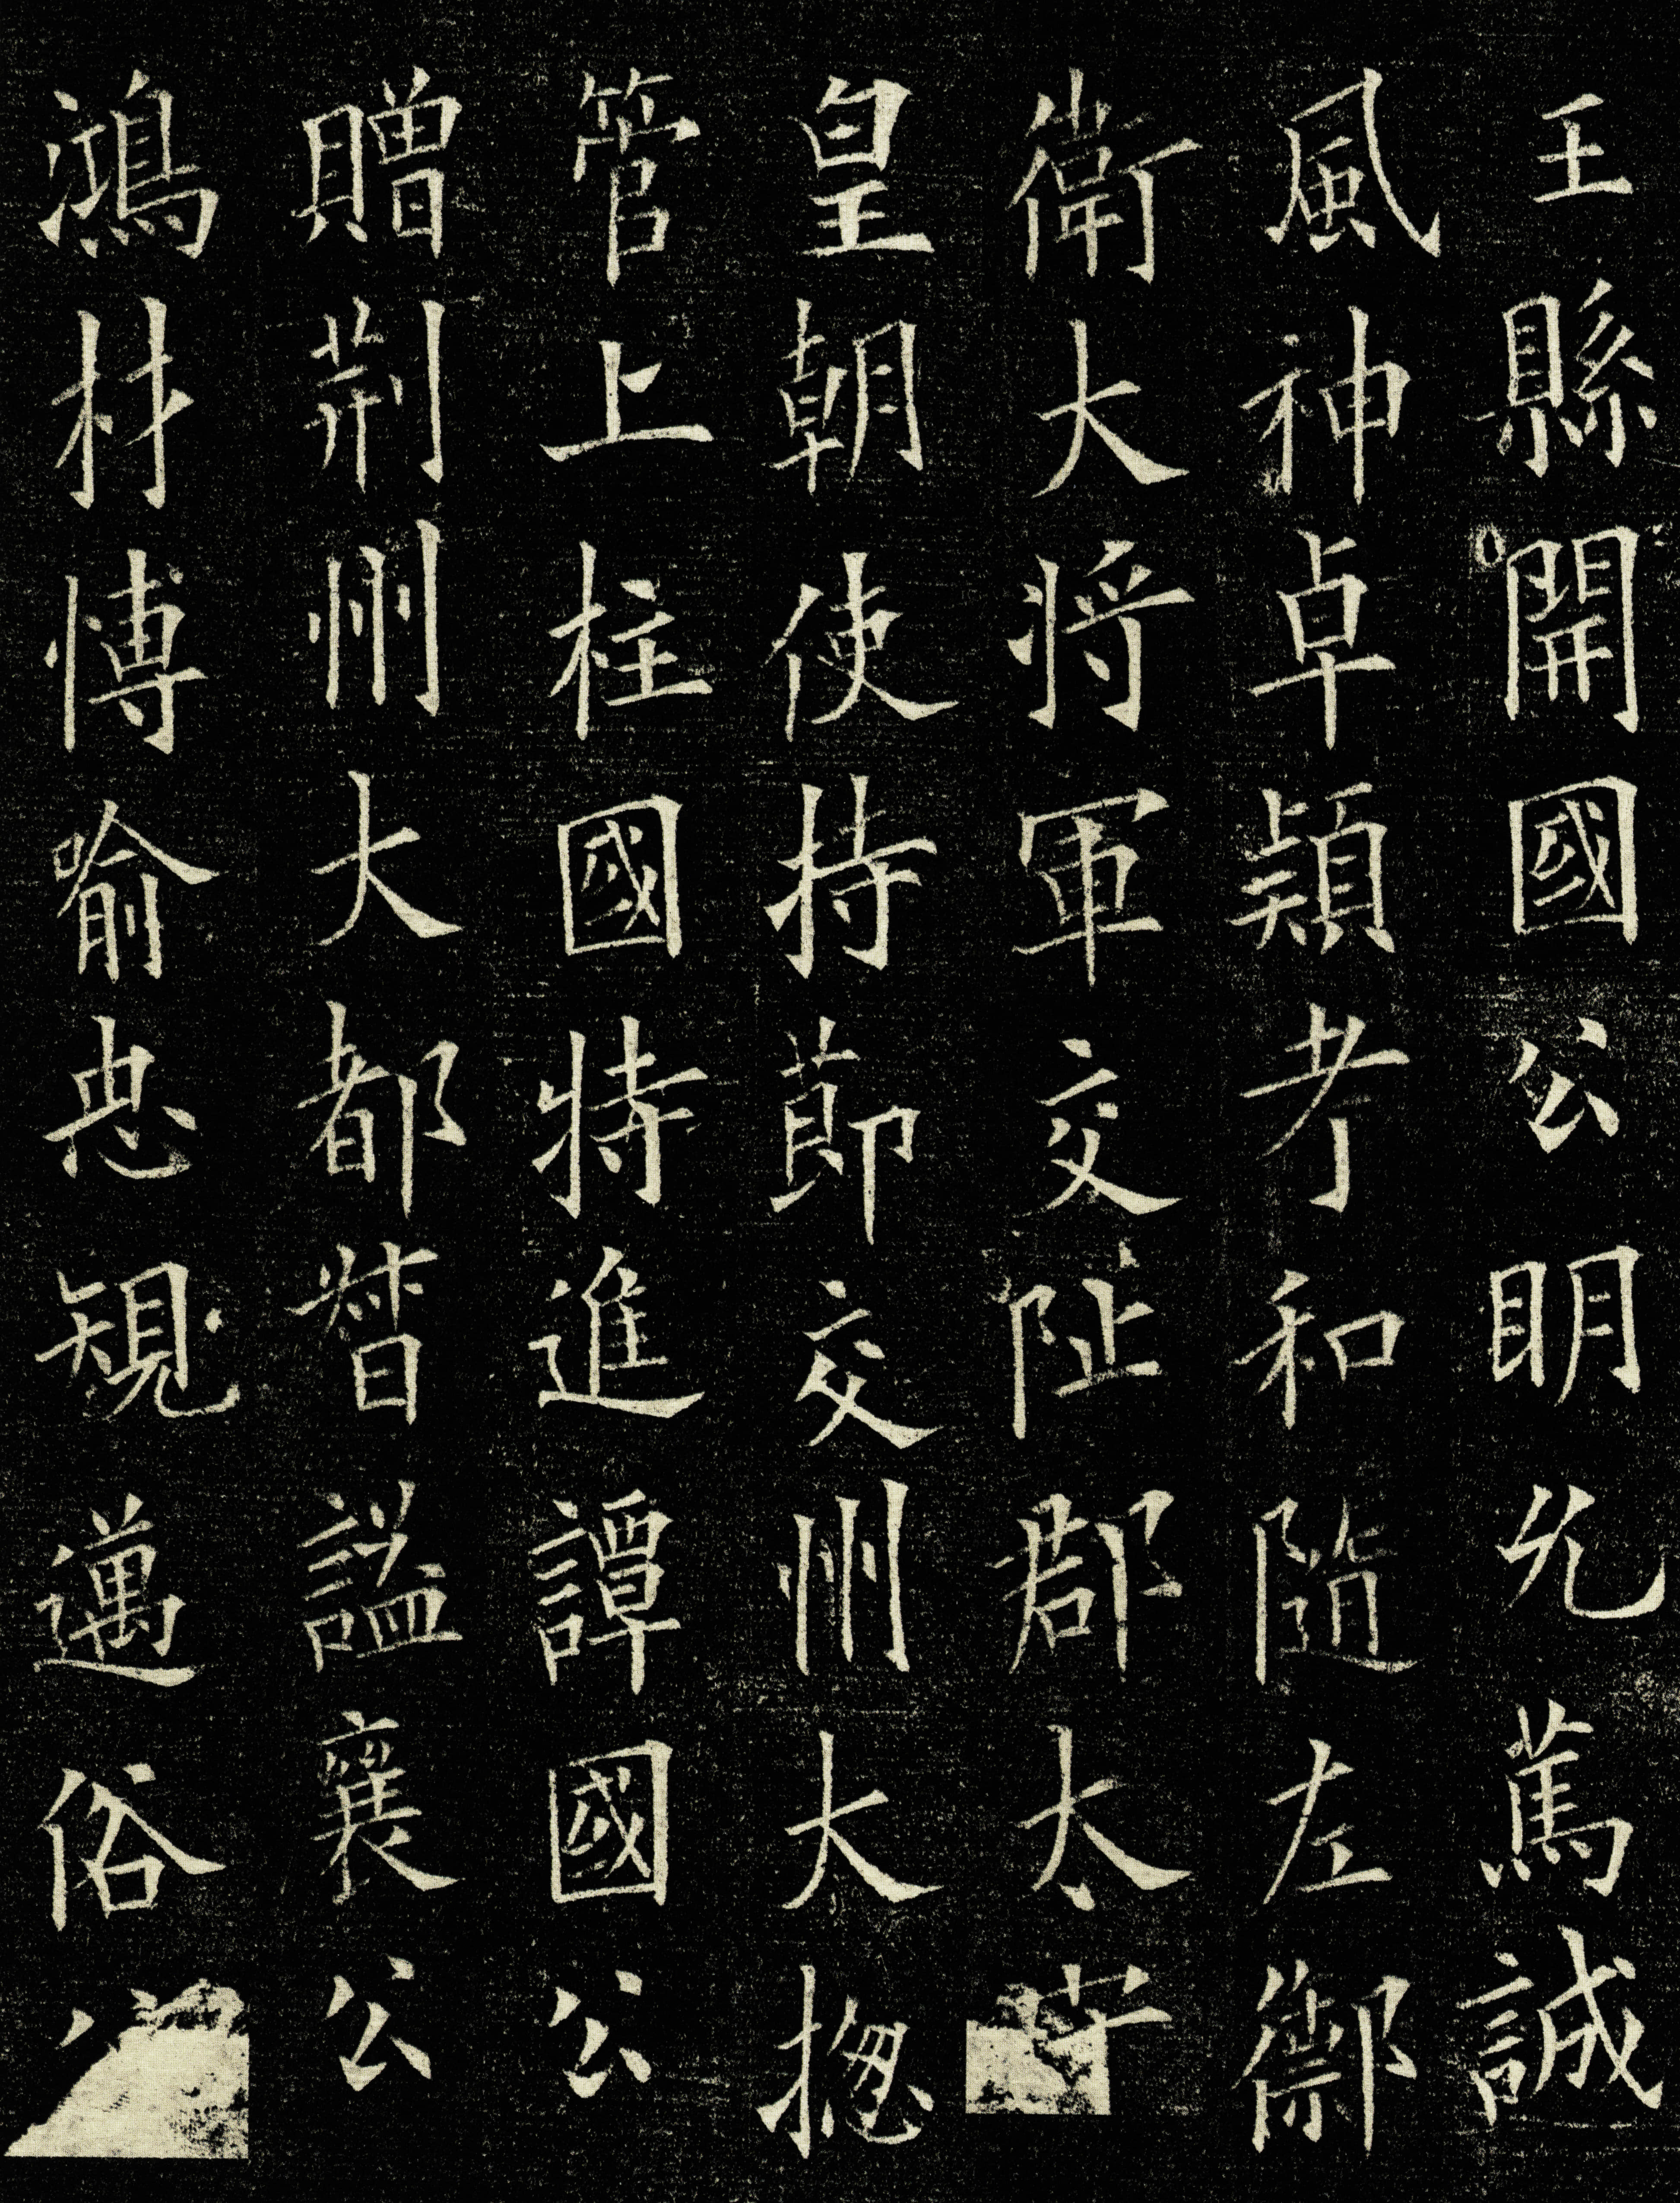 王縣開國公眀允篤誠
風神卓穎考和隨左禦
衛大將軍交阯郡太守
皇朝使持節交州大揔
管上柱國特進譚國公
贈荊州大都督謚襄公
鴻材愽喻忠䂓邁俗